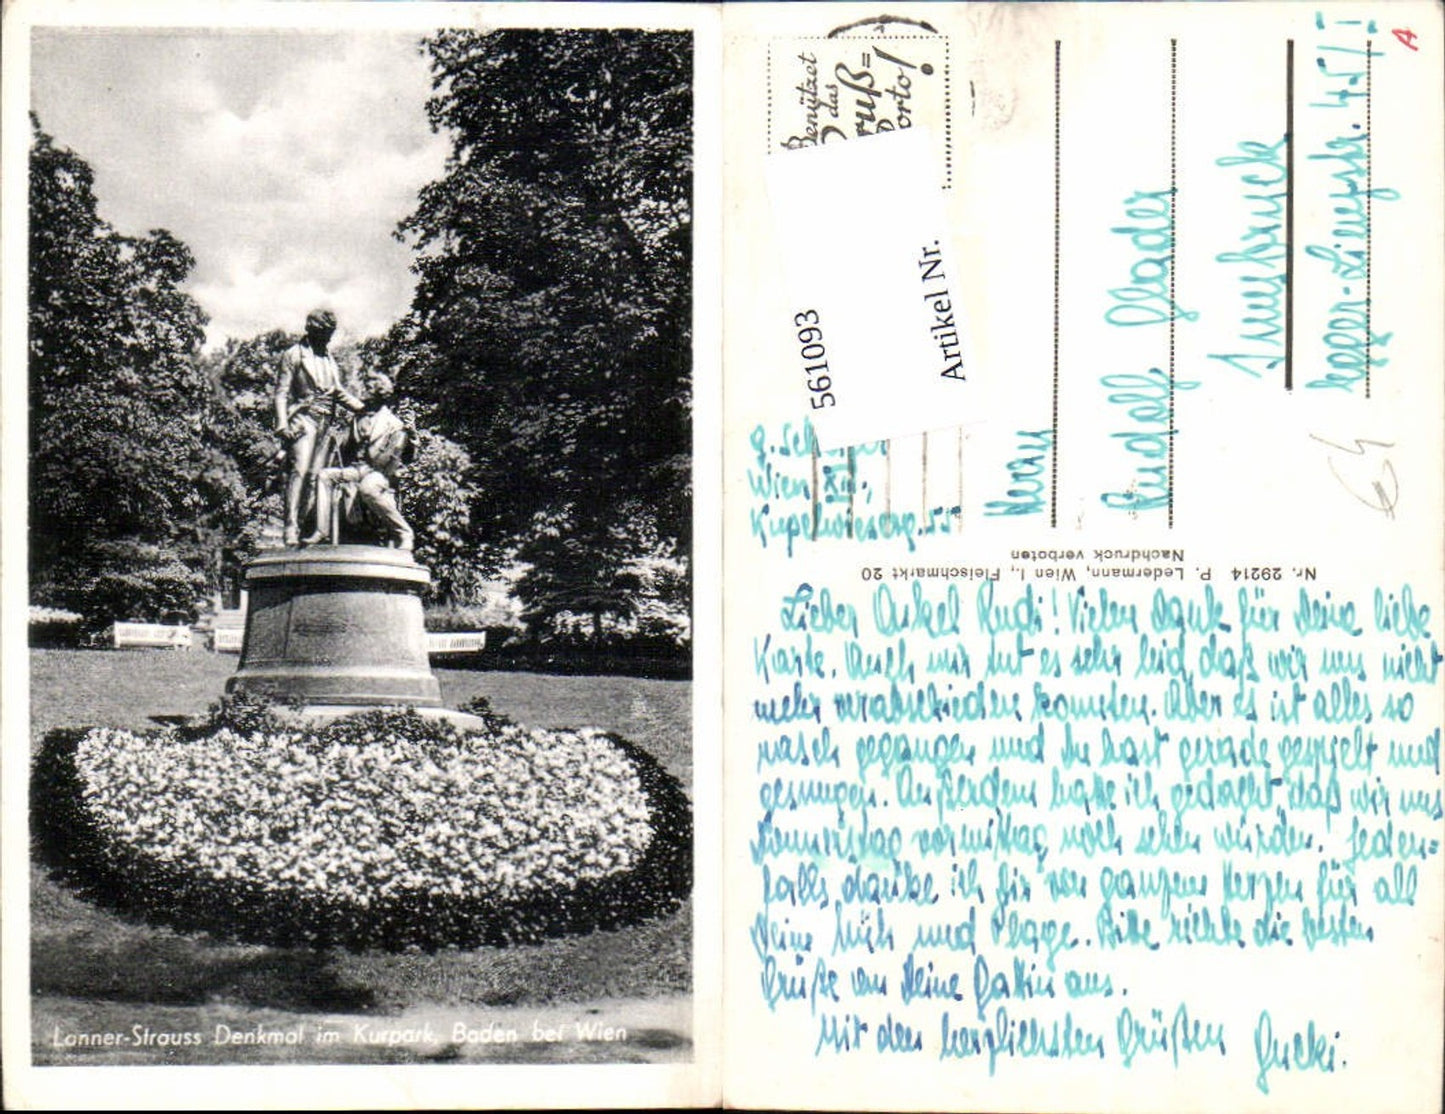 Lanner-Strauss Denkmal im Kurpark, Baden bei Wien
Benützet
das
Gruß=
Porto!
561093
Artikel Nr.
A
G.
Wien XIII.,
Kupelwieserg. 55
Herrn
Rudolf
Innsbruck
Egger-Lienzstr. 45/I
Nr. 29214 P. Ledermann, Wien I., Fleischmarkt 20
Nachdruck verboten
Lieber Onkel Rudi! Vielen Dank für Deine liebe
Karte. Auch mir tut es sehr leid, daß wir uns nicht
mehr verabschieden konnten. Aber es ist alles so
rasch gegangen und Du hast gerade gespielt und
gesungen. Außerdem habe ich gedacht, daß wir uns
Donnerstag vormittag noch sehen würden. Jeden=
falls danke ich Dir von ganzem Herzen für all
Deine Müh und Plage. Bitte richte die besten
Grüße an Deine Gattin aus.
Mit den herzlichsten Grüßen Gucki.